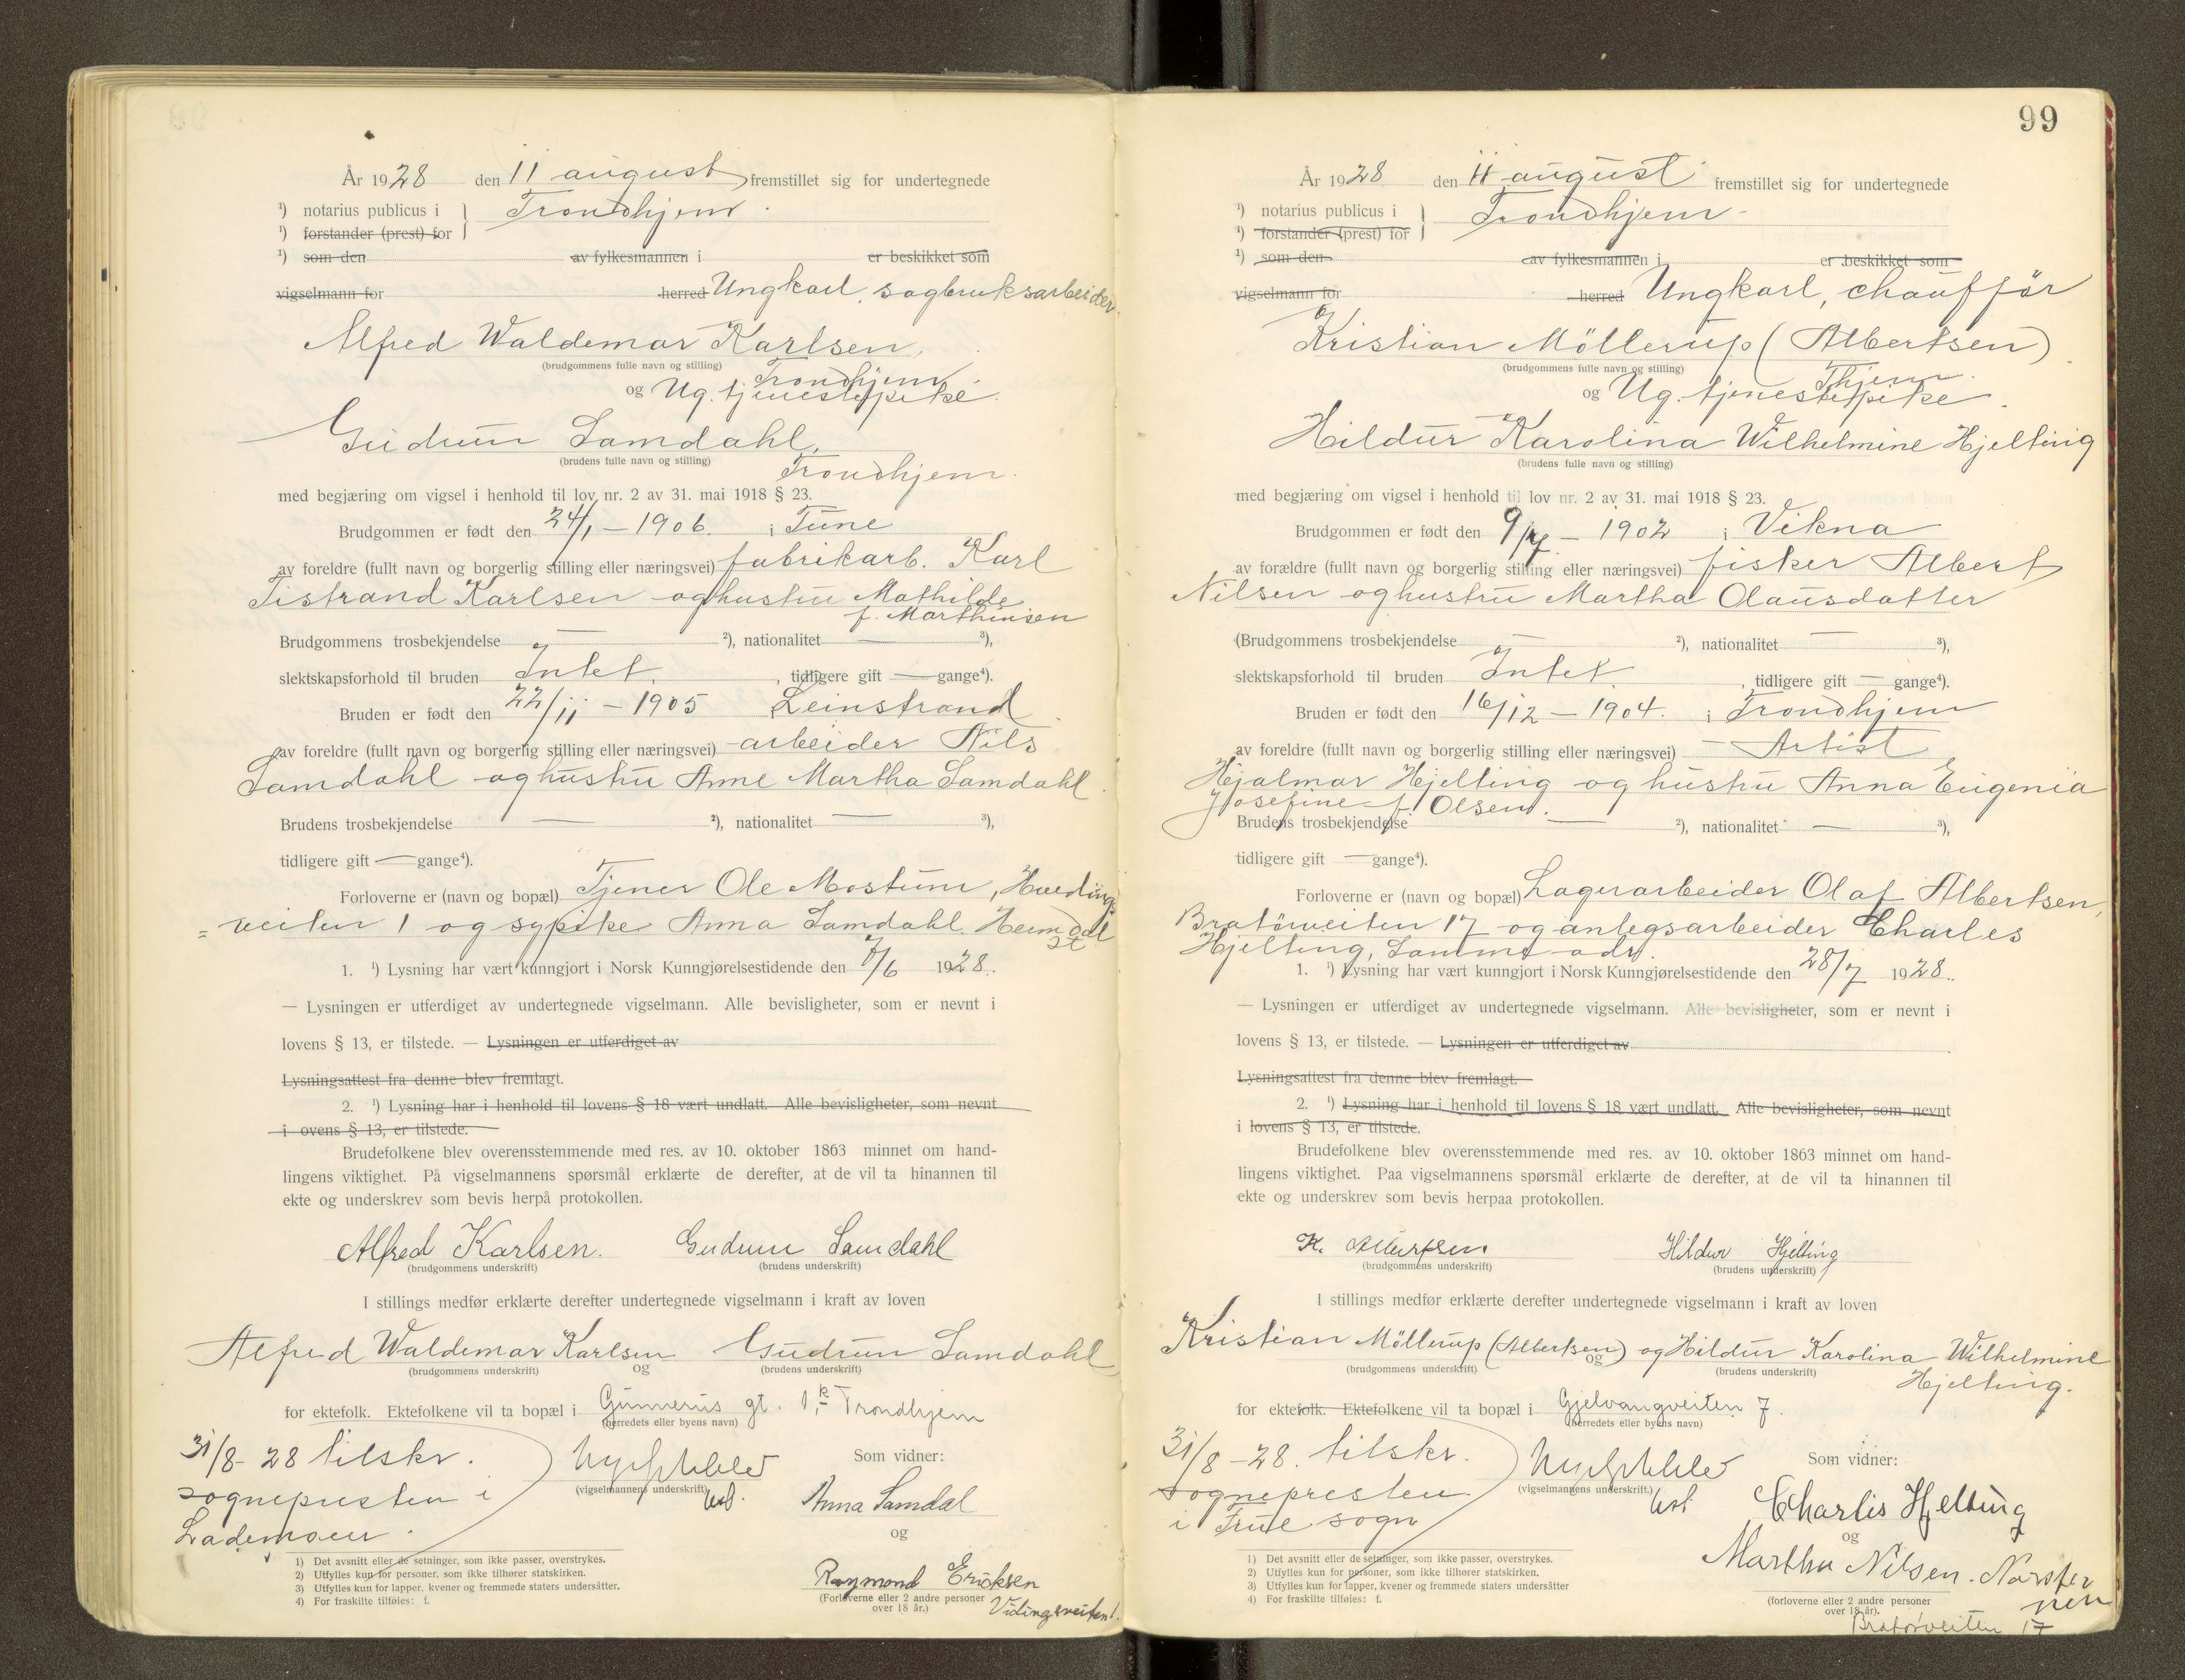 År 1928 den 11 august fremstillet sig for undertegnede
¹) notarius publicus i Trondhjem.
¹) forstander (prest) for
¹) som den av fylkesmannen i er beskikket som
vigselmann for herred Ungkarl, sagbruksarbeider
Alfred Waldemar Karlsen,
(brudgommens fulle navn og stilling)
Trondhjem.
og Ug. tjenestepike.
Gudrun Samdahl,
(brudens fulle navn og stilling)
Trondhjem.
med begjæring om vigsel i henhold til lov nr. 2 av 31. mai 1918 § 23.
Brudgommen er født den 24/1 - 1906. i Tune
av foreldre (fullt navn og borgerlig stilling eller næringsvei) fabrikarb. Karl
Tistrand Karlsen og hustru Mathilde
f. Marthinsen
Brudgommens trosbekjendelse — ²), nationalitet — ³),
slektskapsforhold til bruden Intet. , tidligere gift — gange⁴).
Bruden er født den 22/11 - 1905 Leinstrand.
av foreldre (fullt navn og borgerlig stilling eller næringsvei) arbeider Nils
Samdahl og hustru Anne Martha Samdahl.
Brudens trosbekjendelse — ²), nationalitet — ³),
tidligere gift — gange⁴).
Forloverne er (navn og bopæl) Tjener Ole Mostum,
= veiten 1 og sypike Anna Samdahl. Heimdal
st.
1. ¹) Lysning har vært kunngjort i Norsk Kunngjørelsestidende den 7/6 1928.
— Lysningen er utferdiget av undertegnede vigselmann. Alle bevisligheter, som er nevnt i
lovens § 13, er tilstede. — Lysningen er utferdiget av
Lysningsattest fra denne blev fremlagt.
2. ¹) Lysning har i henhold til lovens § 18 vært undlatt. Alle bevisligheter, som nevnt
i ovens § 13, er tilstede.
Brudefolkene blev overensstemmende med res. av 10. oktober 1863 minnet om hand-
lingens viktighet. På vigselmannens spørsmål erklærte de derefter, at de vil ta hinannen til
ekte og underskrev som bevis herpå protokollen.
Alfred Karlsen. Gudrun Samdahl
(brudgommens underskrift) (brudens underskrift)
I stillings medfør erklærte derefter undertegnede vigselmann i kraft av loven
Alfred Waldemar Karlsen Gudrun Samdahl
(brudgommens underskrift) og (brudens underskrift)
for ektefolk. Ektefolkene vil ta bopæl i Gunnerus gt. 1 k Trondhjem
(herredets eller byens navn)
31/8-28 tilskr.
sognepresten i
Lademoen.
(vigselmannens underskrift)
Som vidner:
Anna Samdal
og
Raymond Ericksen
(Forloverne eller 2 andre personer
over 18 år.)
Vidingsveiten 1.
1) Det avsnitt eller de setninger, som ikke passer, overstrykes.
2) Utfylles kun for personer, som ikke tilhører statskirken.
3) Utfylles kun for lapper, kvener og fremmede staters undersåtter.
4) For fraskilte tilføies: f.
99
År 1928 den 11 august fremstillet sig for undertegnede
¹) notarius publicus i Trondhjem-
¹) forstander (prest) for
¹) som den av fylkesmannen i er beskikket som
vigselmann for herred Ungkarl, chauffør
Kristian Möllerup (Albertsen)
(brudgommens fulle navn og stilling)
Thjem.
og Ug. tjenestepike.
Hildur Karolina Wilhelmine Hjelting
(brudens fulle navn og stilling)
med begjæring om vigsel i henhold til lov nr. 2 av 31. mai 1918 § 23.
Brudgommen er født den - 1902 i Vikna
av forældre (fullt navn og borgerlig stilling eller næringsvei) fisker Albert
Nilsen og hustru Martha Olausdatter
(Brudgommens trosbekjendelse — ²), nationalitet — ³),
slektskapsforhold til bruden Intet , tidligere gift — gange⁴).
Bruden er født den 16/12 - 1904. i Trondhjem
av foreldre (fullt navn og borgerlig stilling eller næringsvei) Artist
Hjalmar Hjelting og hustru Anna Eugenia
Josefine f. Olsen.
Brudens trosbekjendelse — ²), nationalitet — ³),
tidligere gift — gange⁴).
Forloverne er (navn og bopæl) Lagerarbeider Olaf Albertsen,
Bratörveiten 17 og anlegsarbeider Charles
Hjelting, samme adr.
1. ¹) Lysning har vært kunngjort i Norsk Kunngjørelsestidende den 28/7 1928.
— Lysningen er utferdiget av undertegnede vigselmann. Alle bevisligheter, som er nevnt i
lovens § 13, er tilstede. — Lysningen er utferdiget av
Lysningsattest fra denne blev fremlagt.
2. ¹) Lysning har i henhold til lovens § 18 vært undlatt. Alle bevisligheter, som nevnt
i lovens § 13, er tilstede.
Brudefolkene blev overensstemmende med res. av 10. oktober 1863 minnet om hand-
lingens viktighet. Paa vigselmannens spørsmål erklærte de derefter, at de vil ta hinannen til
ekte og underskrev som bevis herpaa protokollen.
K. Albertsen. Hildur Hjelting
(brudgommens underskrift) (brudens underskrift)
I stillings medfør erklærte derefter undertegnede vigselmann i kraft av loven
Kristian Möllerup (Albertsen) og Hildur Karolina Wilhelmine
(brudgommens underskrift) og (brudens underskrift)
Hjelting.
for ektefolk. Ektefolkene vil ta bopæl i Gjelvangveiten 7.
(herredets eller byens navn)
31/8-28. tilskr.
sognepresten
i Frue sogn
(vigselmannens underskrift.)
Som vidner:
Charlis Hjelting
og
Martha Nilsen.
(forloverne eller 2 andre personer
over 18 år).
Bratørveiten 17
1) Det avsnitt eller de setninger, som ikke passer, overstrykes.
2) Utfylles kun for personer, som ikke tilhører statskirken.
3) Utfylles kun for lapper, kvener og fremmede staters undersåtter
4) For fraskilte tilføies: f.